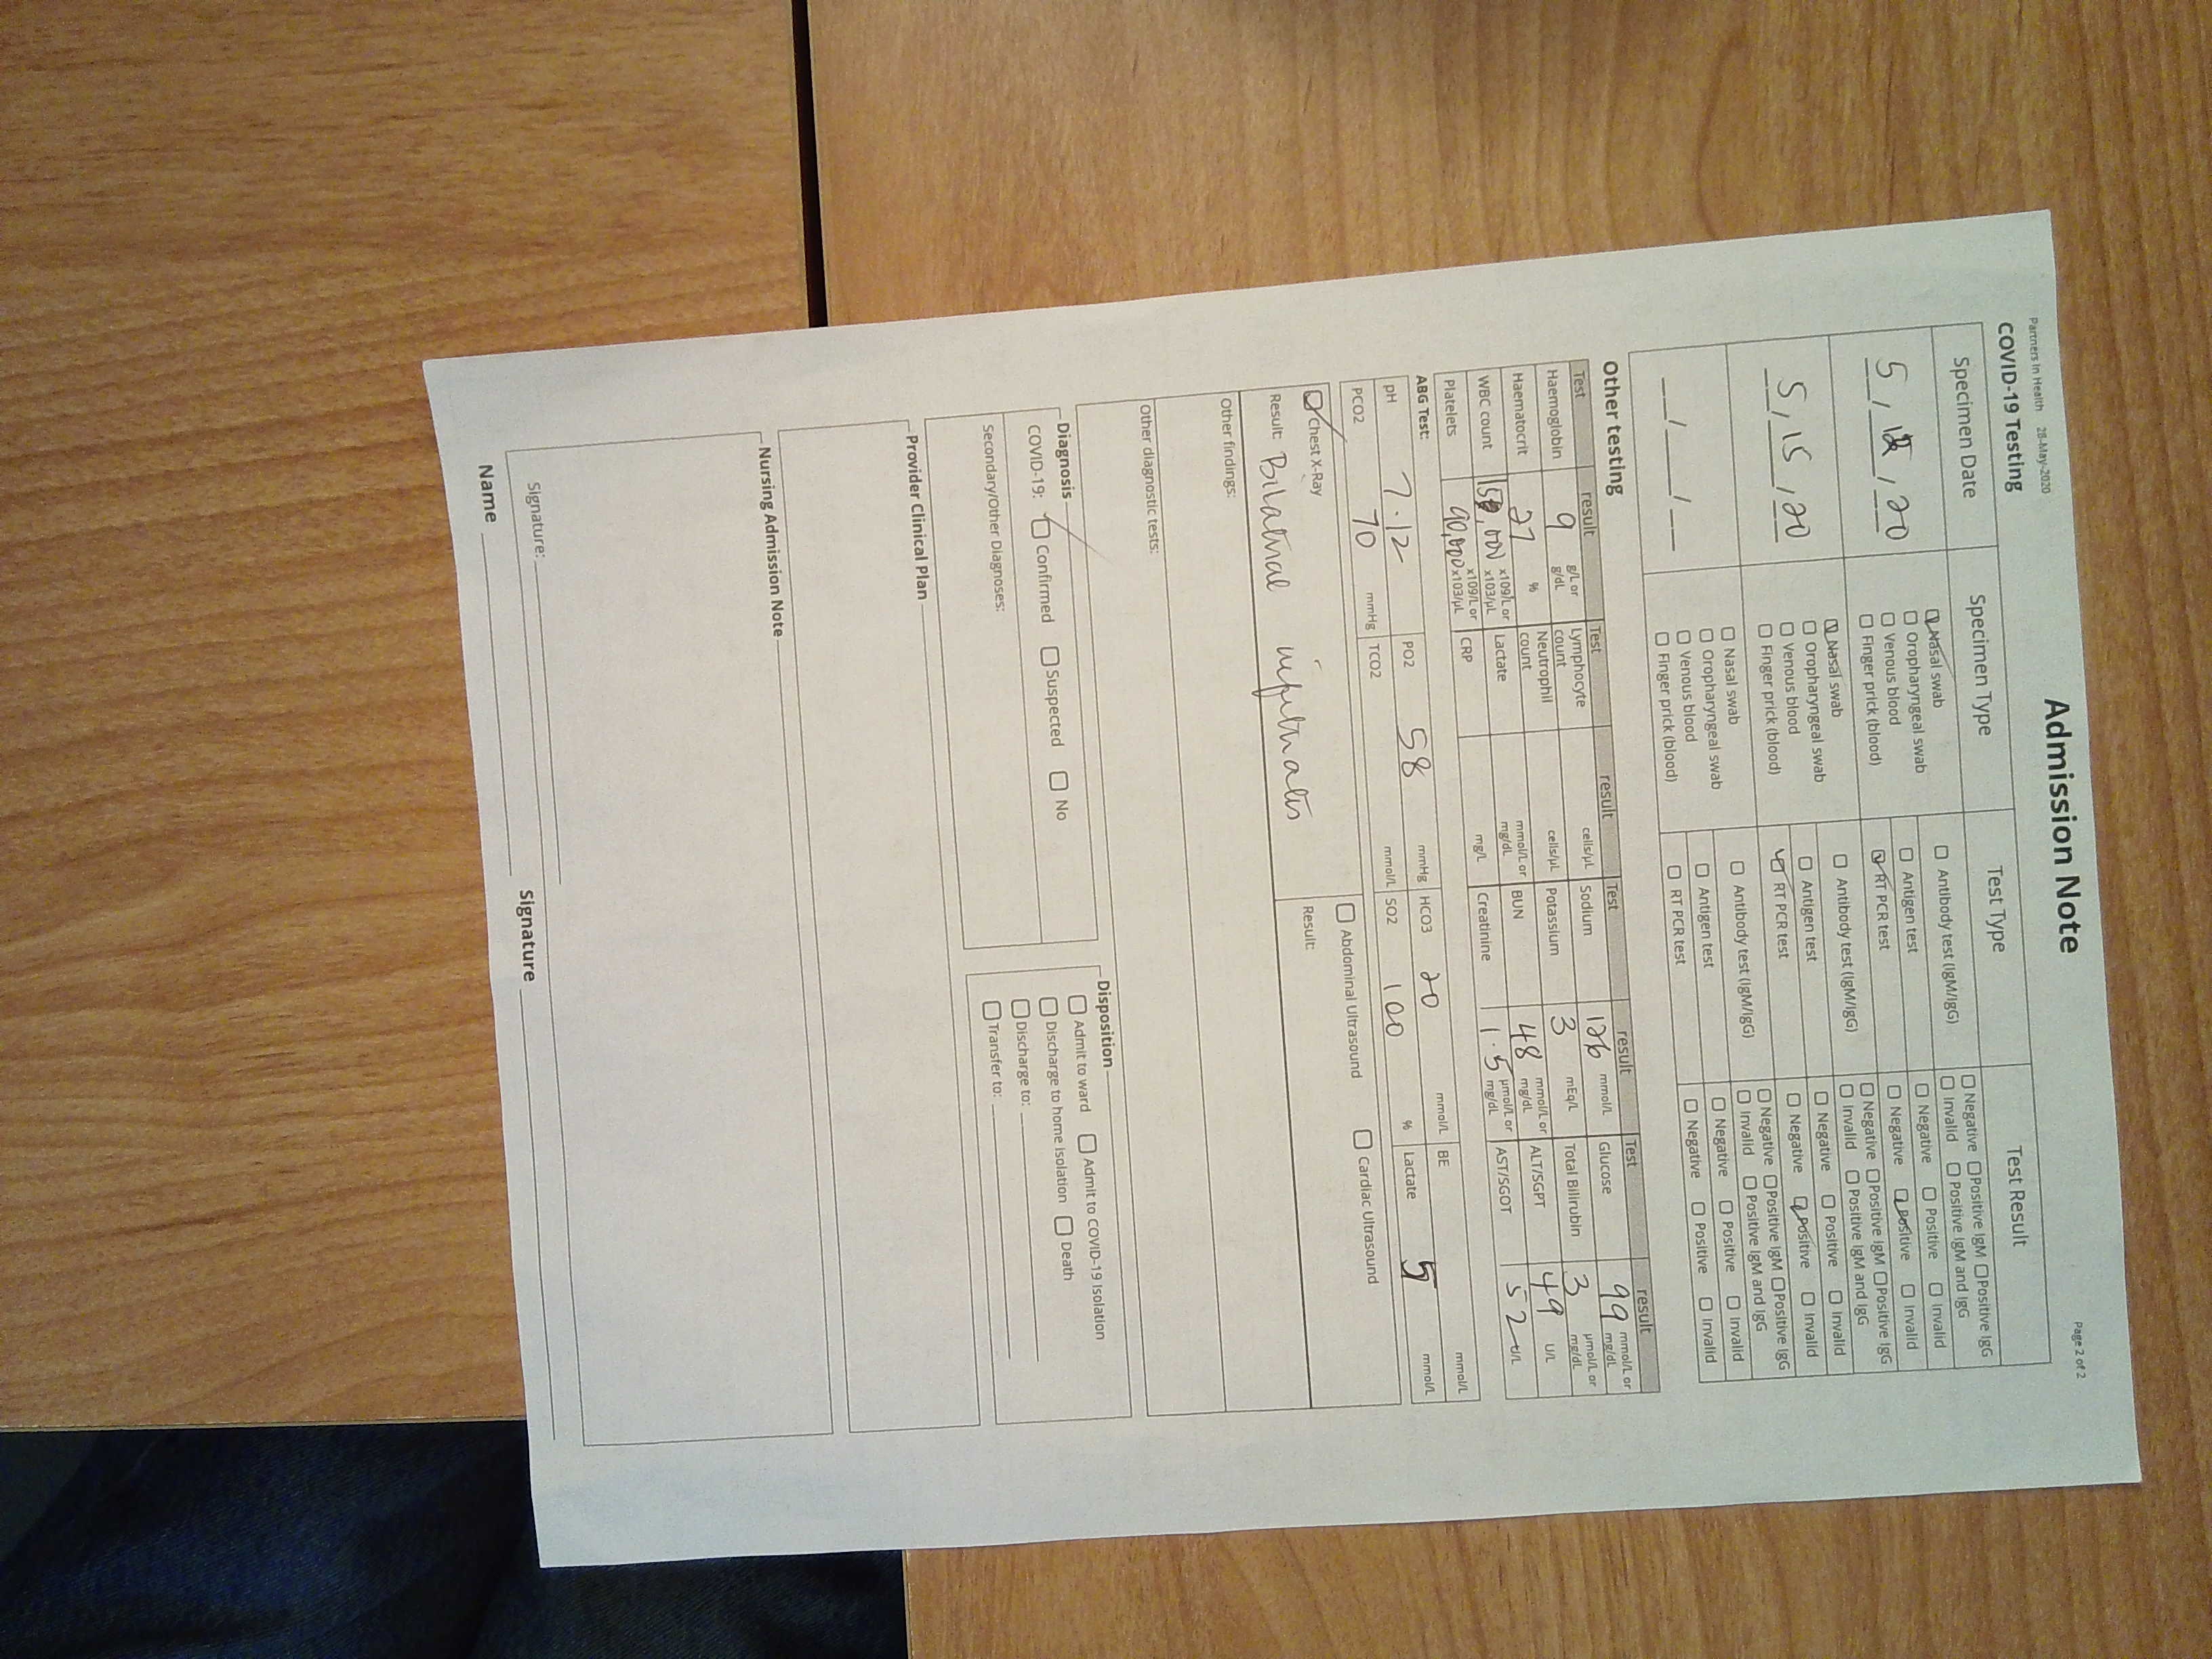 Partners In Health 28-May-2020
Page 2 of 2
Admission Note
COVID-19 Testing
Specimen Date Specimen Type Test Type Test Result
5 / / 20
☑ Nasal swab
☐ Oropharyngeal swab
☐ Venous blood
☐ Finger prick (blood)
☐ Antibody test (IgM/IgG) ☐ Negative ☐ Positive IgM ☐ Positive IgG
☐ Invalid ☐ Positive IgM and IgG
☐ Antigen test ☐ Negative ☐ Positive ☐ Invalid
☑ RT PCR test ☐ Negative ☑ Positive ☐ Invalid
5 / 15 / 20
☑ Nasal swab
☐ Oropharyngeal swab
☐ Venous blood
☐ Finger prick (blood)
☐ Antibody test (IgM/IgG) ☐ Negative ☐ Positive IgM ☐ Positive IgG
☐ Invalid ☐ Positive IgM and IgG
☐ Antigen test ☐ Negative ☐ Positive ☐ Invalid
☑ RT PCR test ☐ Negative ☑ Positive ☐ Invalid
__ / __ / __
☐ Nasal swab
☐ Oropharyngeal swab
☐ Venous blood
☐ Finger prick (blood)
☐ Antibody test (IgM/IgG) ☐ Negative ☐ Positive IgM ☐ Positive IgG
☐ Invalid ☐ Positive IgM and IgG
☐ Antigen test ☐ Negative ☐ Positive ☐ Invalid
☐ RT PCR test ☐ Negative ☐ Positive ☐ Invalid
Other testing
Test result Test result Test result Test result
Haemoglobin 9 g/L or g/dL Lymphocyte count cells/µL Sodium 126 mmol/L Glucose 99 mmol/L or mg/dL
Haematocrit 27 % Neutrophil count cells/µL Potassium 3 mEq/L Total Bilirubin 3 µmol/L or mg/dL
WBC count x109/L or x103/µL Lactate mmol/L or mg/dL BUN 48 mmol/L or mg/dL ALT/SGPT 49 U/L
Platelets 90,000 x109/L or x103/µL CRP mg/L Creatinine 1.5 µmol/L or mg/dL AST/SGOT 52 U/L
ABG Test:
pH 7.12 PO2 58 mmHg HCO3 20 mmol/L BE mmol/L
PCO2 70 mmHg TCO2 mmol/L SO2 100 % Lactate 5 mmol/L
☑ Chest X-Ray ☐ Abdominal Ultrasound ☐ Cardiac Ultrasound
Result: Bilateral infiltrates
Result:
Other findings:
Other diagnostic tests:
Diagnosis
COVID-19: ☑ Confirmed ☐ Suspected ☐ No
Secondary/Other Diagnoses:
Disposition
☐ Admit to ward ☐ Admit to COVID-19 Isolation
☐ Discharge to home isolation ☐ Death
☐ Discharge to:
☐ Transfer to:
Provider Clinical Plan
Nursing Admission Note
Signature:
Name Signature